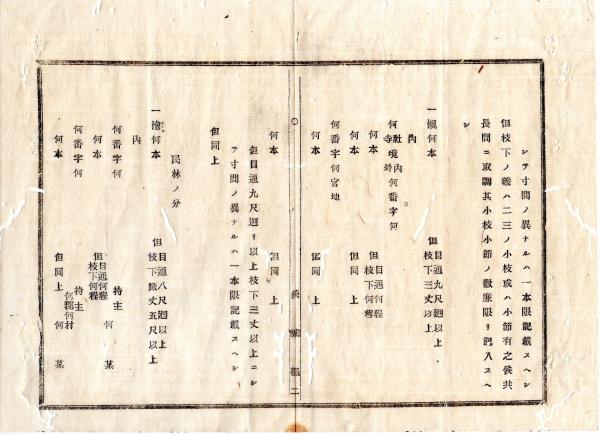 シテ寸間ノ異ナルハ一本限記載スヘシ
但枝下ノ義ハ二三ノ小枝或ハ小節有之候共
長間ニ取調其小枝小節ノ数廉限リ記入スヘ
シ
一槻何本 但目通九尺廻以上枝下三丈以上
内
何社寺境内外何番字何
何本 但目通何程枝下何程
何本 但同上
何番字何官地
何本 但同上
〇
何本 但同上
但目通九尺廻リ以上枝下三丈以上ニシ
テ寸間ノ異ナルハ一本限記載スヘシ
但同上
民林ノ分
一檜何本 但目通八尺廻以上枝下弐丈五尺以上
内
何番字何 持主 何某
何本 但目通何程枝下何程
何番字何 持主何郡何村 何某
何本 但同上